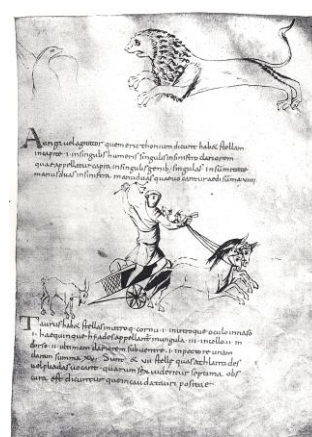 Auriga vel agitator quem ericthonium dicunt habet stellam
in capite i in singulis humeris singulas in sinistro clariorem
quae appellatur capra in singulis genib; singulas in
manus duas in sinistra manu duas
Taurus habet stellas in utroq; cornu i in utroque oculo in naso
i hae quinque hyades appellant ungula iii in collo ii in
dorso ii ultimam clariorem sub ventre i in pectore unam
claram summa xv Sunt & vii stellae quas athlantides
vel pliadas vocant quarum sex videntur septima obs
cura est dicuntur que in cauda tauri positae